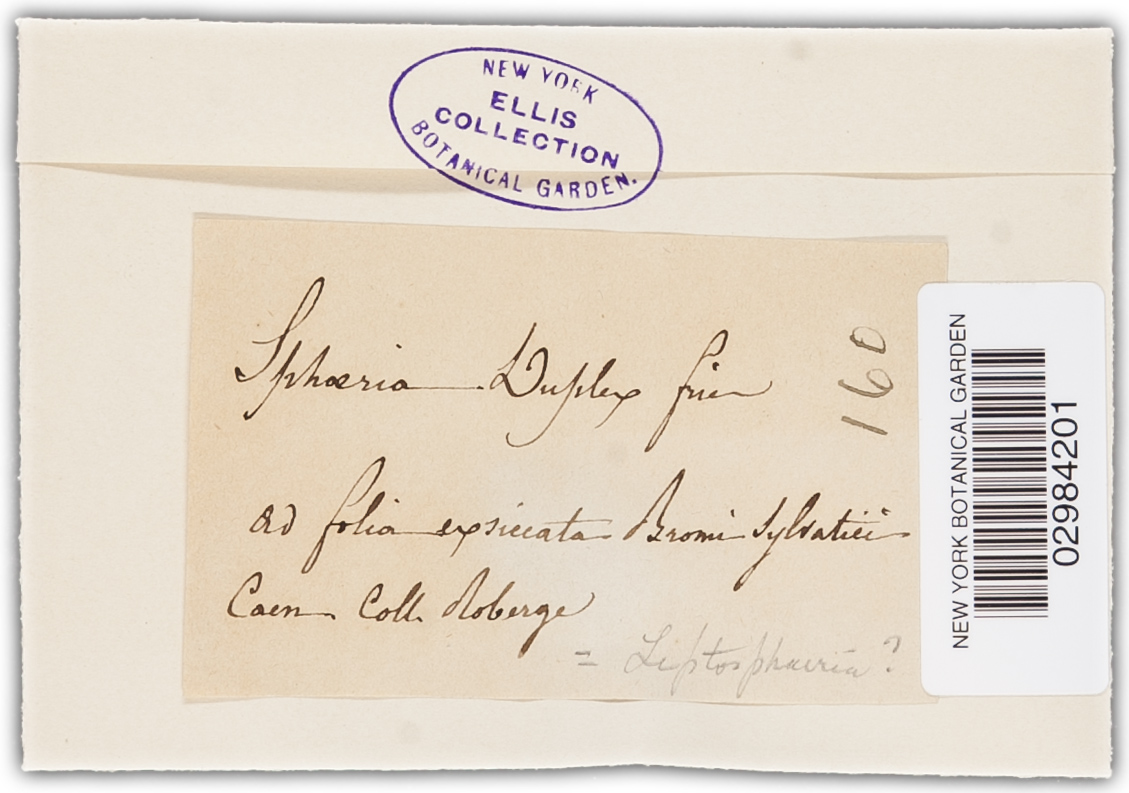 NEW YORK
ELLIS
COLLECTION
BOTANICAL GARDEN.
Sphæria Duplex fries
160
ad folia exsiccata Bromi Sylvatici
Caen Coll. Roberge
= Leptosphaeria?
NEW YORK BOTANICAL GARDEN
02984201